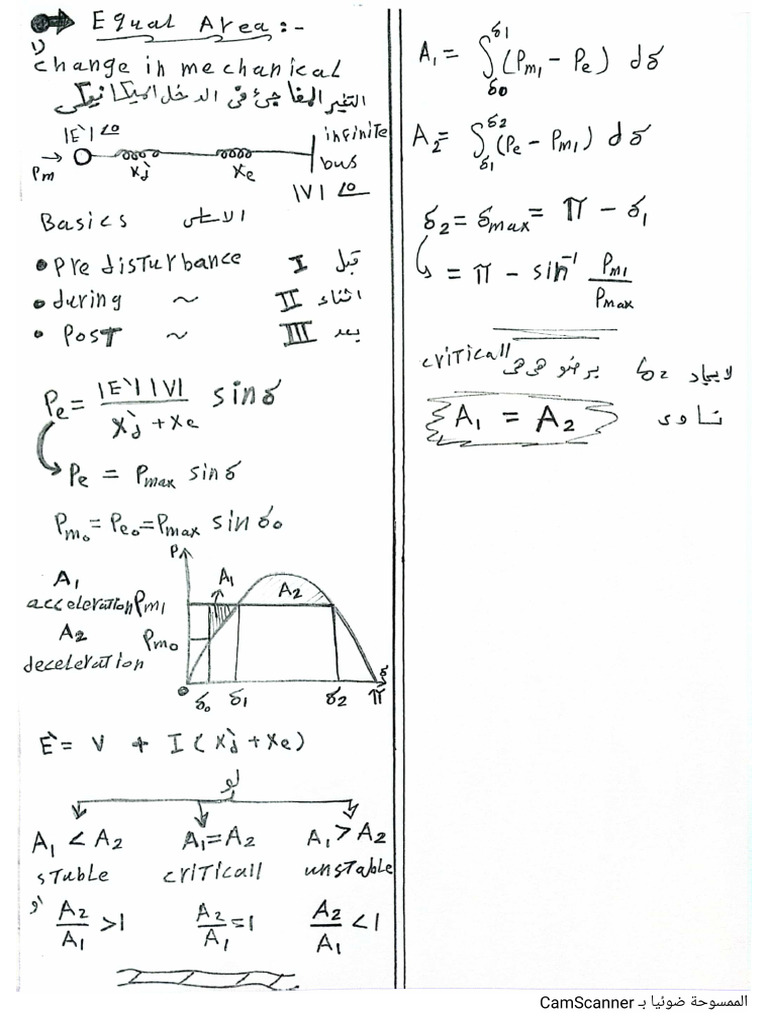 Equal Area :-
1) change in mechanical
التغير المفاجئ في الدخل الميكانيكي
|E'| ∠δ
Pm → X'd Xe infinite bus
|V| ∠0
Basics الاساسى
• Pre disturbance I قبل
• during ~ II اثناء
• Post ~ III بعد
Pe = |E'| |V| / X'd + Xe sin δ
Pe = Pmax sin δ
Pm0 = Pe0 = Pmax sin δ0
P
A1
acceleration
A2
deceleration
Pm1
Pm0
A1
A2
0 δ0 δ1 δ2 π δ
E' = V + I (X'd + Xe)
لو
A1 < A2 A1 = A2 A1 > A2
stable criticall unstable
او A2/A1 > 1 A2/A1 = 1 A2/A1 < 1
A1 = ∫δ0^δ1 (Pm1 - Pe) dδ
A2 = ∫δ1^δ2 (Pe - Pm1) dδ
δ2 = δmax = π - δ1
= π - sin⁻¹ Pm1/Pmax
لايجاد δ2 برضو هى هى criticall
تساوى A1 = A2
الممسوحة ضوئيا بـ CamScanner